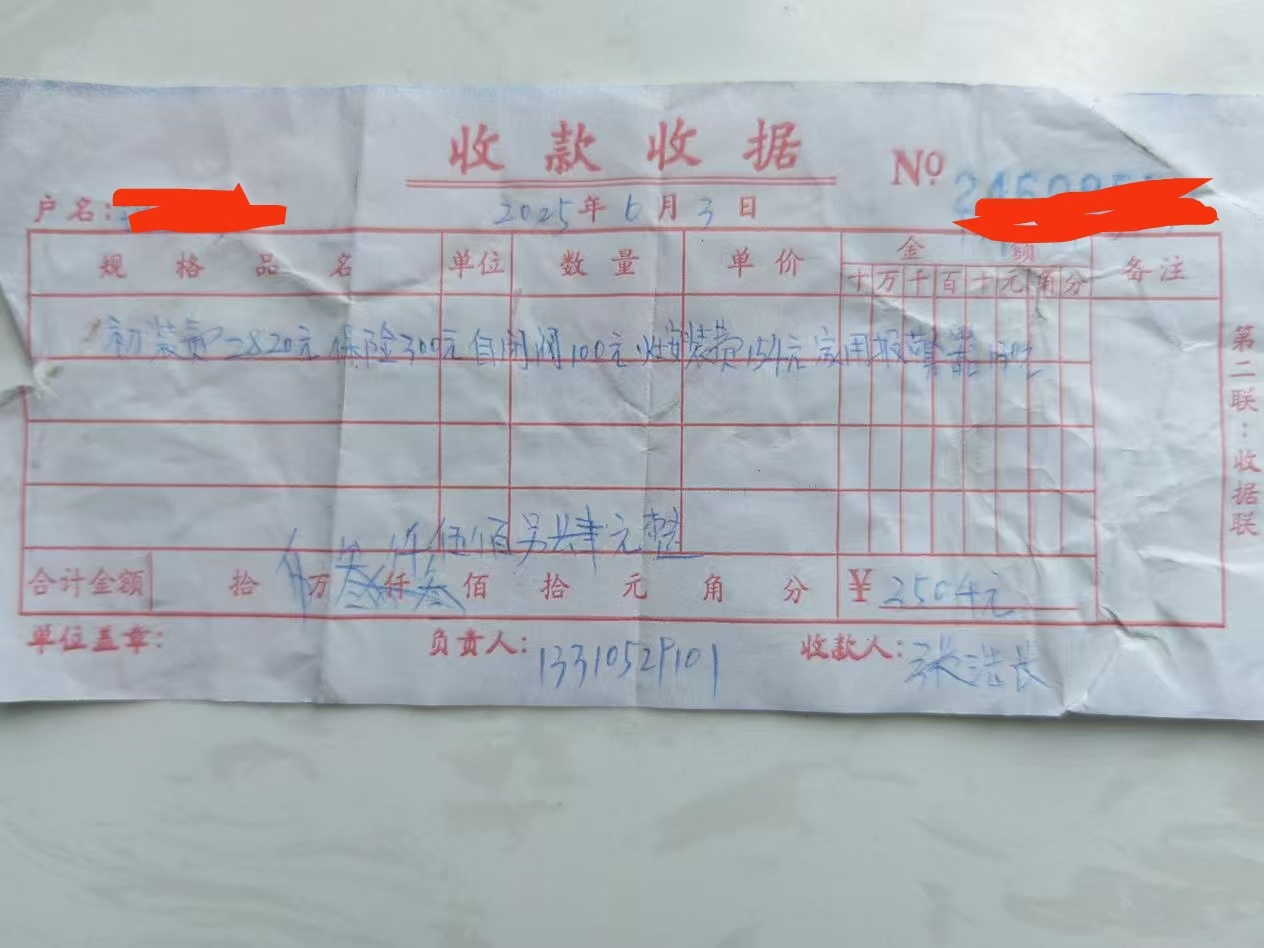 收款收据
№
户名:
2025年6月3日
规格品名 单位 数量 单价 金额 备注
十万千百十元角分
初装费2820元 保险300元 自闭阀100元 灶安装费154元 家用报警器130元
叁仟伍佰另肆元整
合计金额 拾 万 仟 佰 拾 元 角 分 ¥3504元
单位盖章: 负责人:13310529101 收款人:张浩长
第二联:收据联